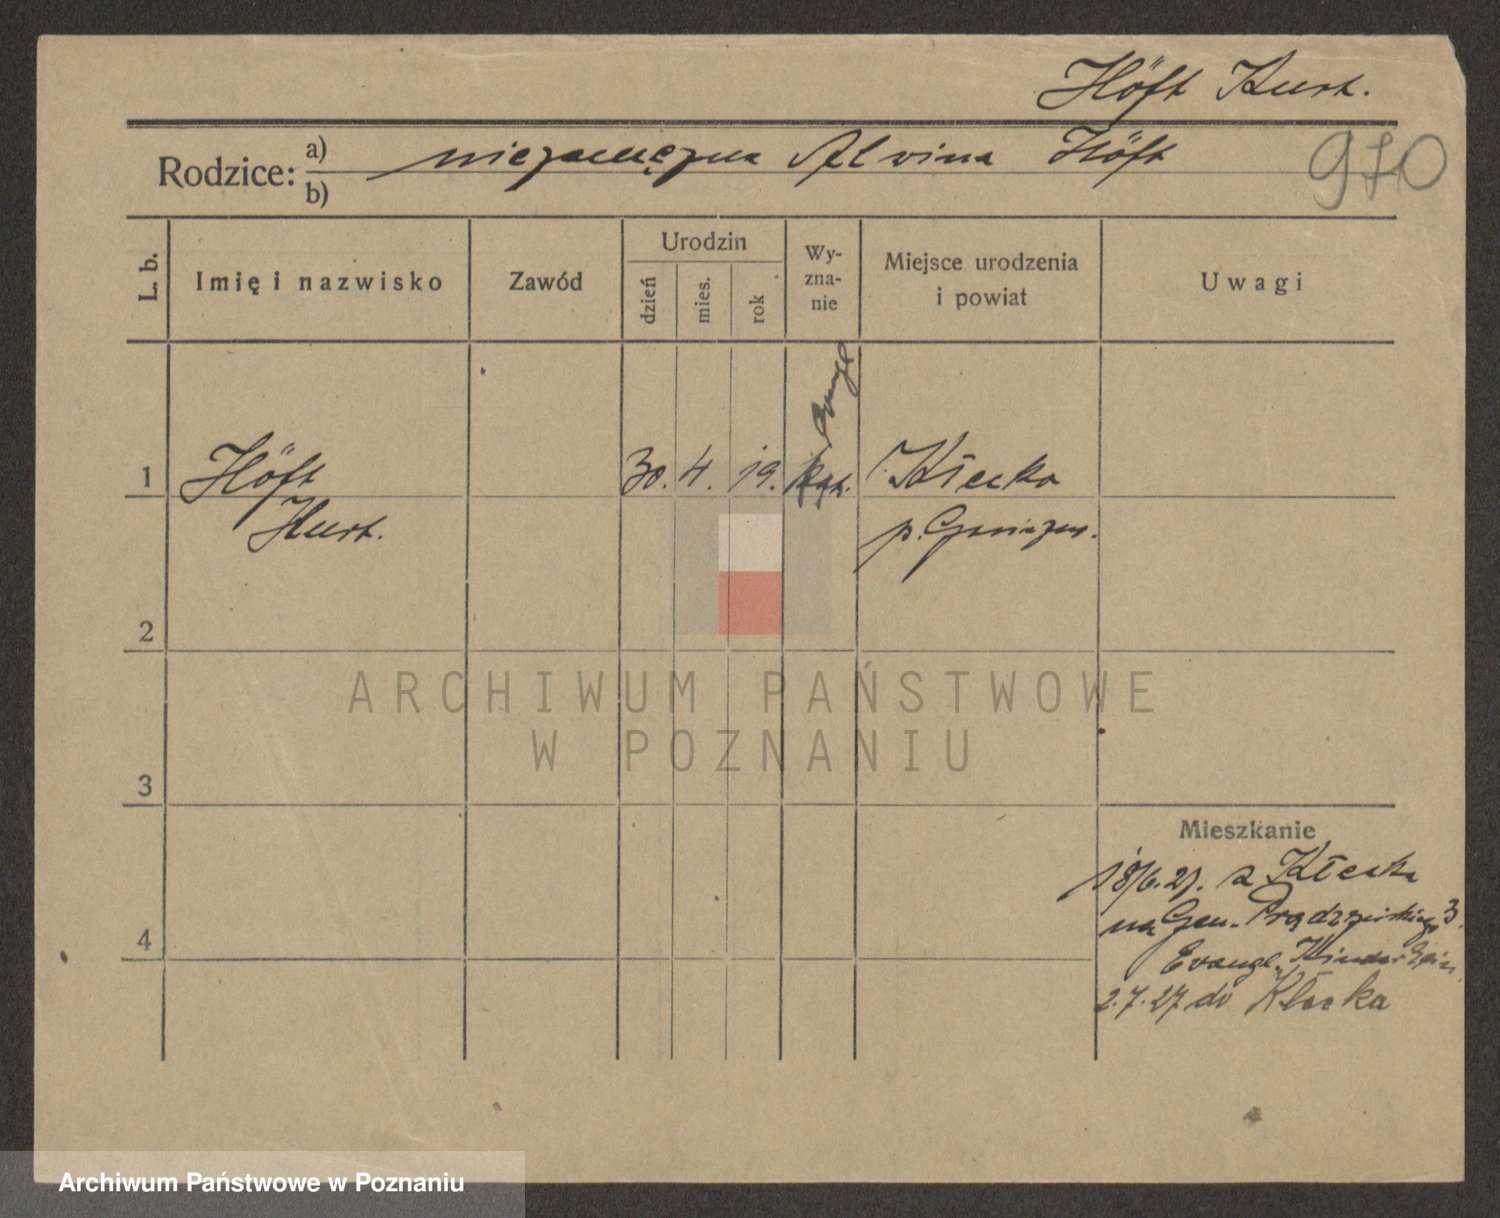 Höft Kurt.
Rodzice: a) niezamężna Alvina Höft
b)
970
L. b.
Imię i nazwisko
Zawód
Urodzin
dzień
mies.
rok
Wy-
zna-
nie
Miejsce urodzenia
i powiat
Uwagi
ewngl
1 Höft 30. 4. 19. kat. Kłecko
Kurt. p. Gniezno.
2
ARCHIWUM PAŃSTWOWE
W POZNANIU
3
Mieszkanie
18/6.27. z Kłecka
na Gen. Prądzyńskiego 3.
Evangl. Kinder
4
2.7.27 do Kłecka
Archiwum Państwowe w Poznaniu